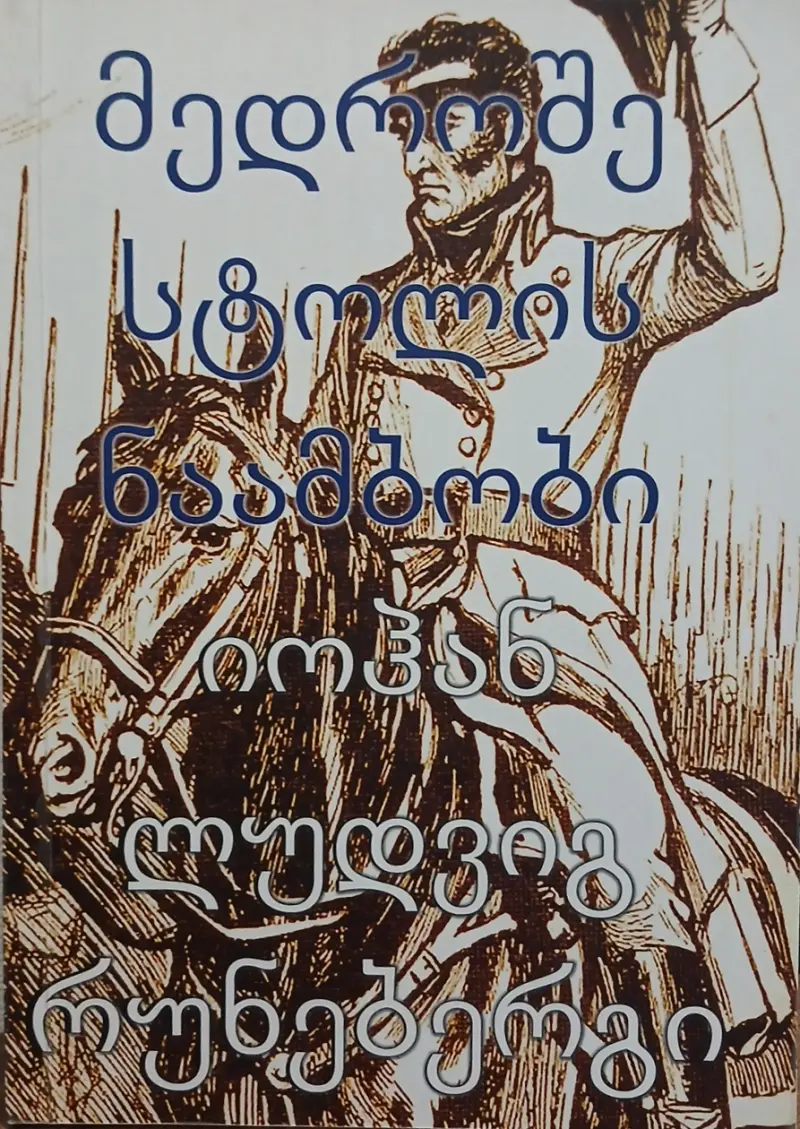 მედროშე
სტოლის
ნაამბობი
იოჰან
ლუდვიგ
რუნებერგი